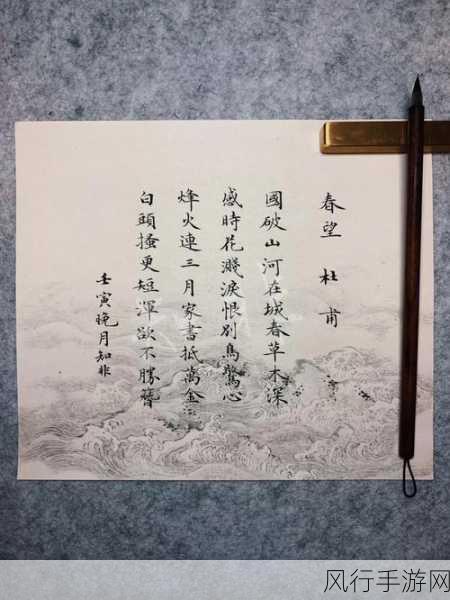 春望 杜甫
國破山河在城春草木深
感時花濺淚恨別鳥驚心
烽火連三月家書抵萬金
白頭搔更短渾欲不勝簪
壬寅晚月知非
风行手游网